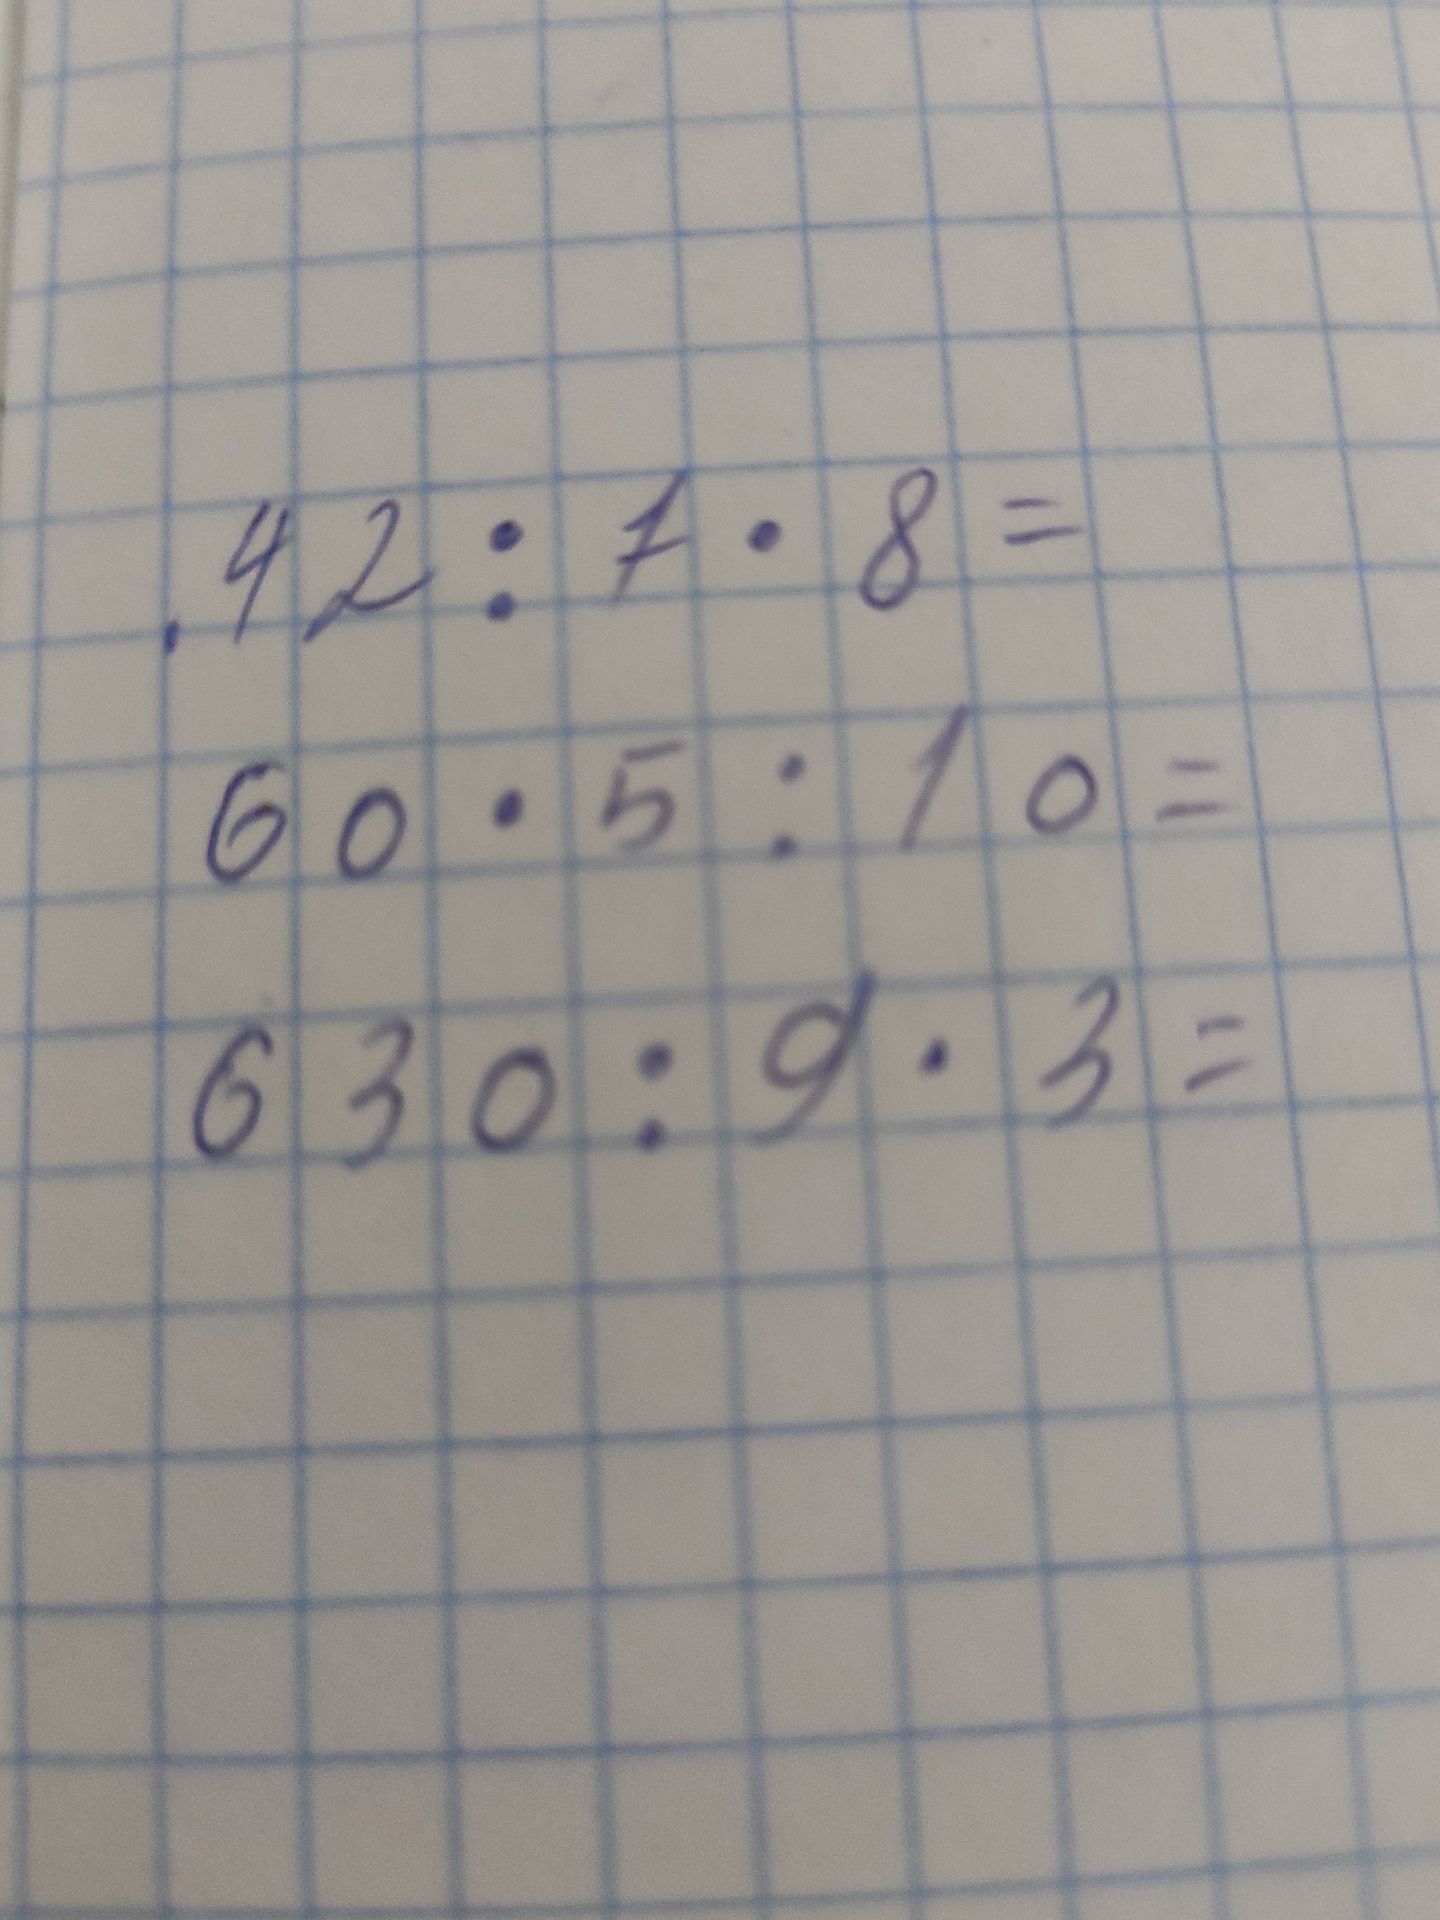 42 : 7 · 8 =
60 · 5 : 10 =
630 : 9 · 3 =